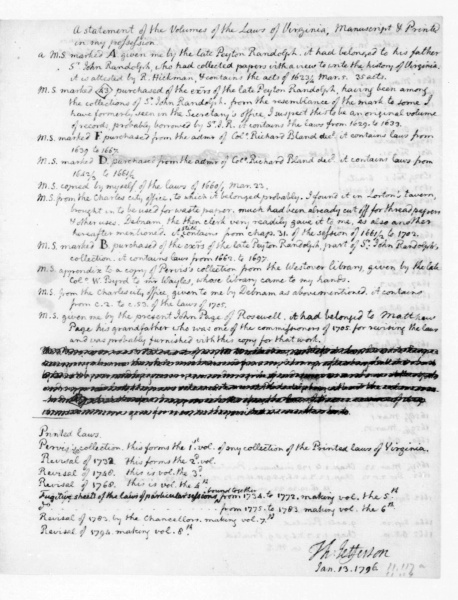 A statement of the Volumes of the Laws of Virginia, Manuscript & Printed
in my possession.
a M.S. marked A given me by the late Peyton Randolph. it had belonged to his father
Sr. John Randolph, who had collected papers with a view to write the history of Virginia.
it is attested by R. Hickman, & contains the acts of 1623/4 Mar. 5. 35 acts.
M.S. marked 43 purchased of the exrs of the late Peyton Randolph, having been among
the collections of Sr. John Randolph. from the resemblance of the mark to some I
have formerly seen in the Secretary's office, I suspect this to be an original volume
of records, probably borrowed by Sr. J. R. it contains the laws from 1629. to 1633.
M.S. marked F purchased from the admr of Colo. Richard Bland decd. it contains laws from
1639 to 1667.
M.S. marked D. purchased from the admr of Colo. Richard Bland decd. it contains laws from
to
M.S. copied by myself of the laws of Mar. 23.
M.S. from the Charles city office, to which it belonged probably. I found it in Lorton's tavern,
brought in to be used for waste paper. much had been already cut off for thread papers
& other uses. Debnam, the then clerk very readily gave it to me, as also another
hereafter mentioned. it contains from chap. 31. of the session of to 1702.
M.S. marked B purchased of the exrs of the late Peyton Randolph, part of Sr. John Randolph's
collection. it contains laws from 1662. to 1697.
M.S. appendix to a copy of Pervis's collection from the Westover library, given by the late
Colo. W. Byrd to Mr Wayles, whose library came to my hands.
M.S. from the Charles city office, given to me by Debnam as abovementioned. it contains
from c. 2. to c. 53. of the laws of 1705.
M.S. given me by the present John Page of Rosewell. it had belonged to Matthew
Page his grandfather who was one of the commissioners of 1705. for revising the laws
and was probably furnished with this copy for that work.
Printed laws.
Pervis's collection. this forms the 1st vol. of my collection of the Printed laws of Virginia.
Revisal of 1733. this forms the 2d vol.
Revisal of 1748. this is vol. the 3d
Revisal of 1768. this is vol. the 4th
Fugitive sheets of the laws of particular sessions bound together from 1734. to 1772. making vol. the 5th
do. from 1775. to 1783 making vol. the 6th
Revisal of 1783. by the Chancellors. making vol. 7th
Revisal of 1794. making vol. 8th
Th: Jefferson
Jan. 13. 1796